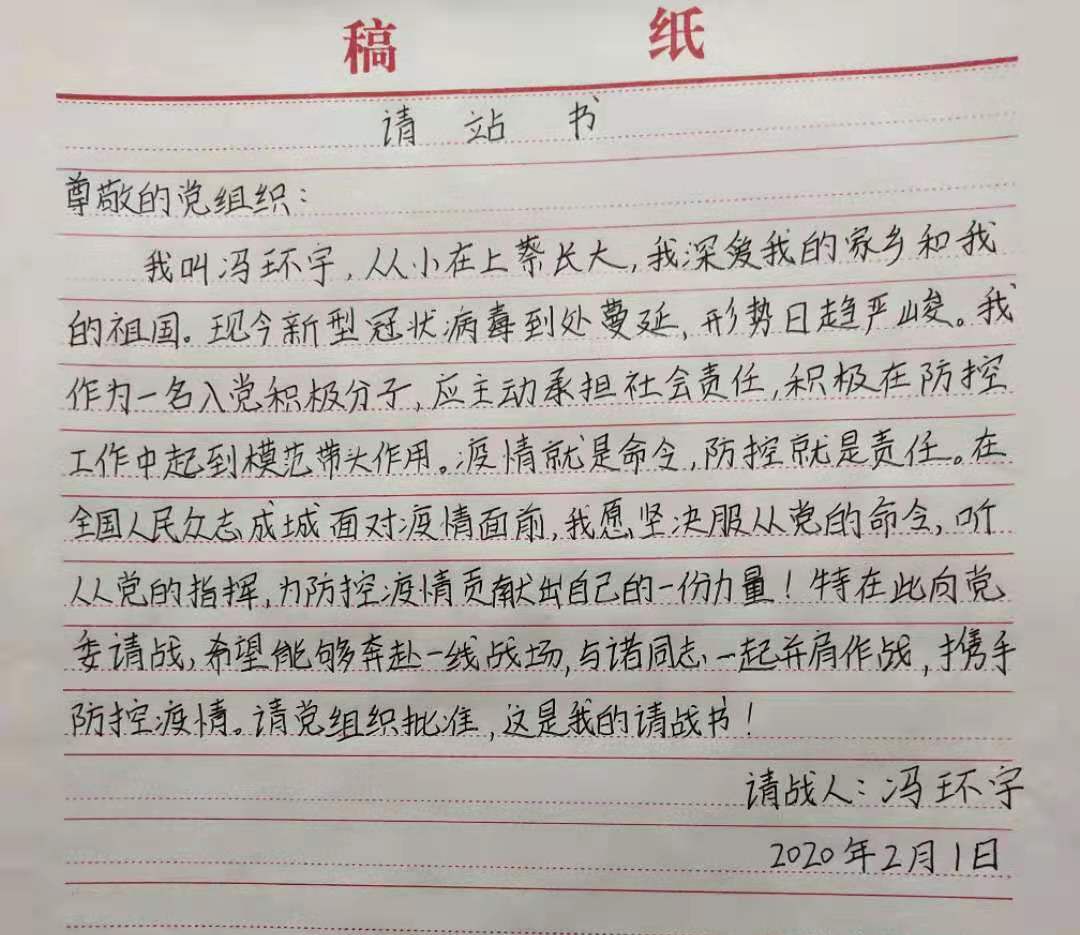 稿 纸
请 站 书
尊敬的党组织：
我叫冯环宇，从小在上蔡长大，我深爱我的家乡和我
的祖国。现今新型冠状病毒到处蔓延，形势日趋严峻。我
作为一名入党积极分子，应主动承担社会责任，积极在防控
工作中起到模范带头作用。疫情就是命令，防控就是责任。在
全国人民众志成城面对疫情面前，我愿坚决服从党的命令，听
从党的指挥，为防控疫情贡献出自己的一份力量！特在此向党
委请战，希望能够奔赴一线战场，与诸同志一起并肩作战，携手
防控疫情。请党组织批准，这是我的请战书！
请战人：冯环宇
2020年2月1日